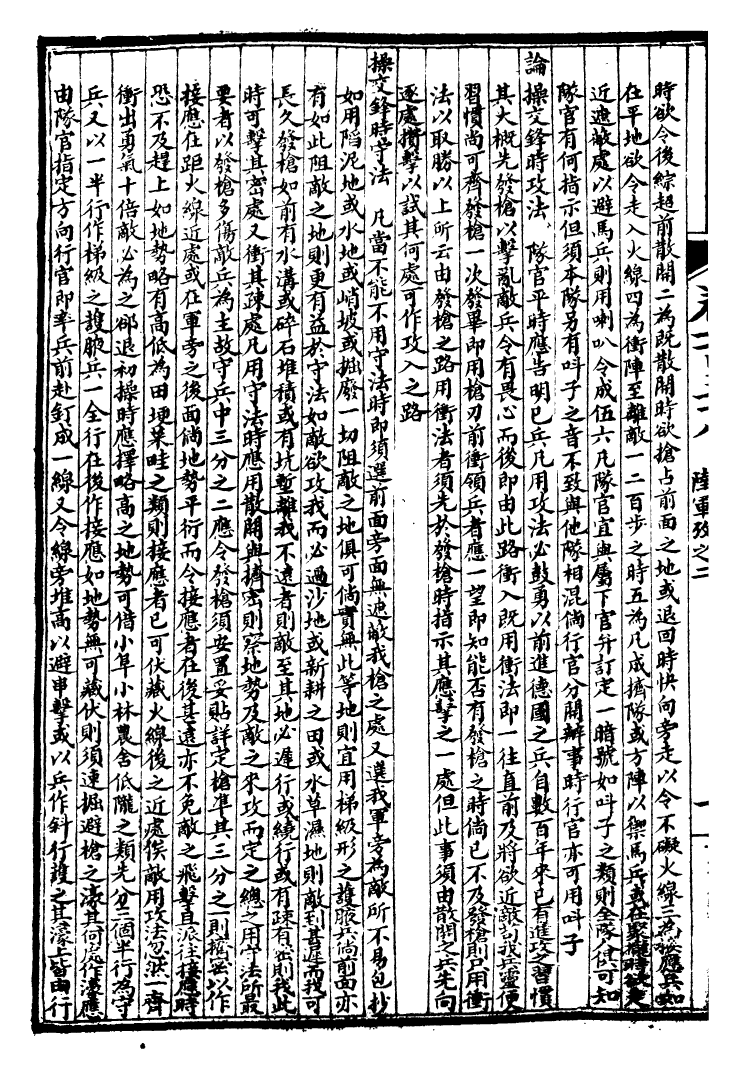 陸軍攷之二
時欲令後綜超前散開二為既散開時欲搶占前面之地或退回時快向旁走以令不礙火線三為接應兵如
在平地欲令走入火線四為衝陣至離敵一二百步之時五為凡成擠隊或方陣以禦馬兵或在
近遮敵處以避馬兵則用喇叭令成伍六凡隊官宜與屬下官弁訂定一暗號如呌子之類則全隊俱可知
隊官有何指示但須本隊另有呌子之音不致與他隊相混倘行官分開辦事時行官亦可用呌子
論操交鋒時攻法 隊官平時應告明己兵凡用攻法必鼓勇以前進德國之兵自數百年來已有進攻之習慣
其大概先發槍以擊亂敵兵令有畏心而後即由此路衝入既用衝法即一往直前及將欲近敵則我兵靈便
習慣尚可齊發槍一次發畢即用槍刃前衝領兵者應一望即知能否有發槍之時倘已不及發槍則只用衝
法以取勝以上所云由發槍之路用衝法者須先於發槍時指示其應擊之一處但此事須由散開之兵先向
逐處攢擊以試其何處可作攻入之路
操交鋒時守法 凡當不能不用守法時即須選前面旁面無遮敵我槍之處又選我軍旁為敵所不易包抄
如用陷泥地或水地或峭坡或掘廢一切阻敵之地俱可倘實無此等地則宜用梯級形之護腋兵倘前面亦
有如此阻敵之地則更有益於守法如敵欲攻我而必過沙地或新耕之田或水草濕地則敵到甚遲而我可
長久發槍如前有水溝或碎石堆積或有坑塹離我不遠者則敵至其地必遲行或繞行或有疎有密則我此
時可擊其密處又衝其疎處凡用守法時應用散開與擠密則察地勢及敵之來攻而定之總之用守法所最
要者以發槍多傷敵兵為主故守兵中三分之二應令發槍須安置妥貼詳定槍準其三分之一則擠密以作
接應在距火線近處或在軍旁之後面倘地勢平衍而令接應者在後甚遠亦不免敵之飛擊且派往接應時
恐不及趕上如地勢略有高低為田埂菜畦之類則接應者已可伏藏火線後之近處俟敵用攻法忽然一齊
衝出勇氣十倍敵必為之卻退初操時應擇略高之地勢可借小阜小林農舍低隴之類先分三個半行為守
兵又以一半行作梯級之護腋兵一全行在後作接應如地勢無可藏伏則須速掘避槍之濠其何處作濠應
由隊官指定方向行官即率兵前赴釘成一線又令線旁堆高以避串擊或以兵作斜行護之其濠上皆由行